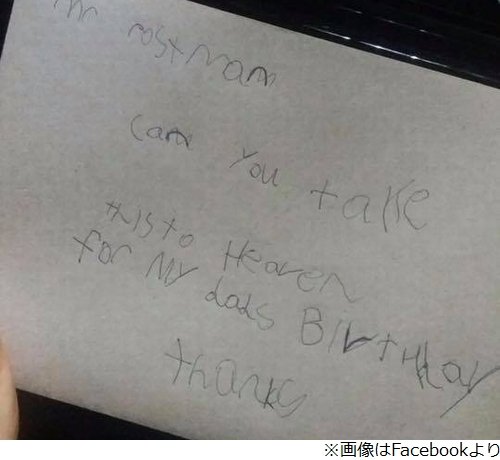 Mr Postman
Can you take
this to Heaven
for My dads Birthday
thanks
※画像はFacebookより